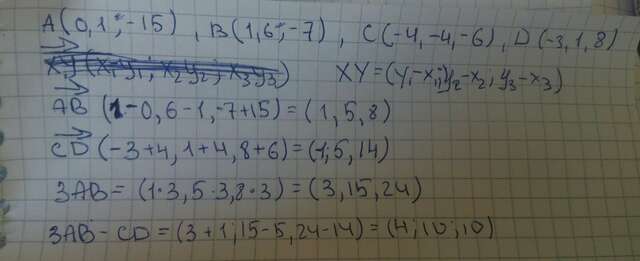 A(0,1,-15), B(1,6,-7), C(-4,-4,-6), D(-3,1,8)
XY (x₁y₁; x₂y₂; x₃y₃) XY=(y₁-x₁;y₂-x₂;y₃-x₃)
AB (1-0, 6-1, -7+15)=(1, 5, 8)
CD (-3+4, 1+4, 8+6)=(1;5,14)
3AB= (1·3, 5·3, 8·3) = (3, 15, 24)
3AB-CD = (3+1; 15-5, 24-14) = (4; 10; 10)